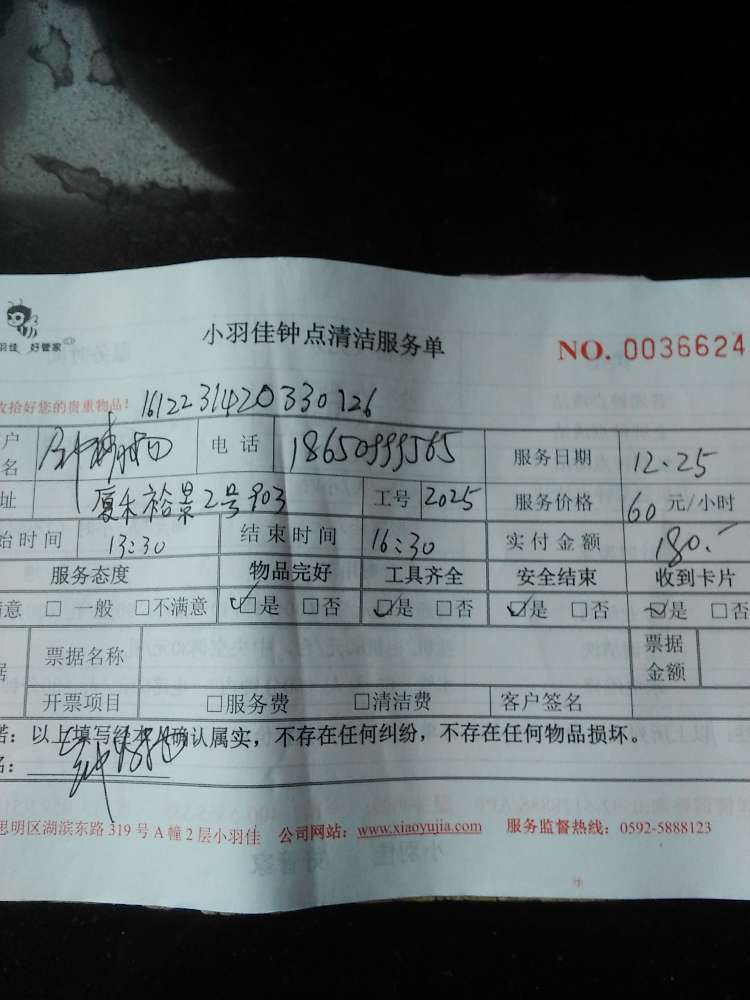 小羽佳钟点清洁服务单
NO. 0036624
羽佳 好管家
收拾好您的贵重物品! 161223142033​0726
户名 电话 18650999565 服务日期 12.25
址 厦禾裕景2号903 工号 2025 服务价格 60 元/小时
始时间 13:30 结束时间 16:30 实付金额 180.-
服务态度 物品完好 工具齐全 安全结束 收到卡片
满意 □ 一般 □不满意 ☑是 □否 ☑是 □否 ☑是 □否 ☑是 □否
据 票据名称 票据金额
开票项目 □服务费 □清洁费 客户签名
诺: 以上填写经本人确认属实,不存在任何纠纷,不存在任何物品损坏。
名:
思明区湖滨东路 319 号 A 幢 2 层小羽佳 公司网站: www.xiaoyujia.com 服务监督热线: 0592-5888123